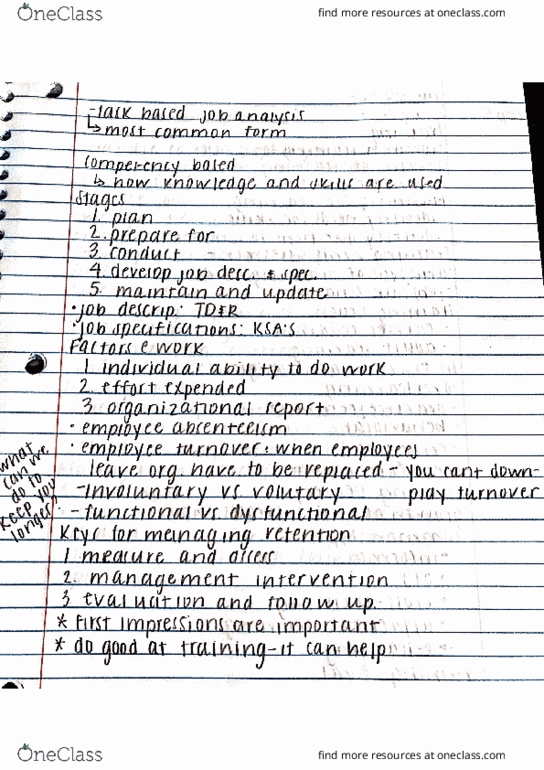 OneClass
find more resources at oneclass.com
-task based job analysis
↳ most common form
competency based
↳ how knowledge and skills are used
Stages
1. plan
2. prepare for
3. conduct
4. develop job desc. & spec.
5. maintain and update
• job descrip: TD&R
• job specifications: KSA's
Factors @ work
1. individual ability to do work
2. effort expended
3. organizational report
• employee absenteeism
• employee turnover: when employees
leave org. have to be replaced - you cant down-
play turnover
-involuntary vs volutary
- functional vs dysfunctional
what
can we
do to
keep you
longer?
Keys for managing retention
1. measure and assess
2. management intervention
3. evaluation and follow up.
* first impressions are important
* do good at training-it can help
OneClass
find more resources at oneclass.com